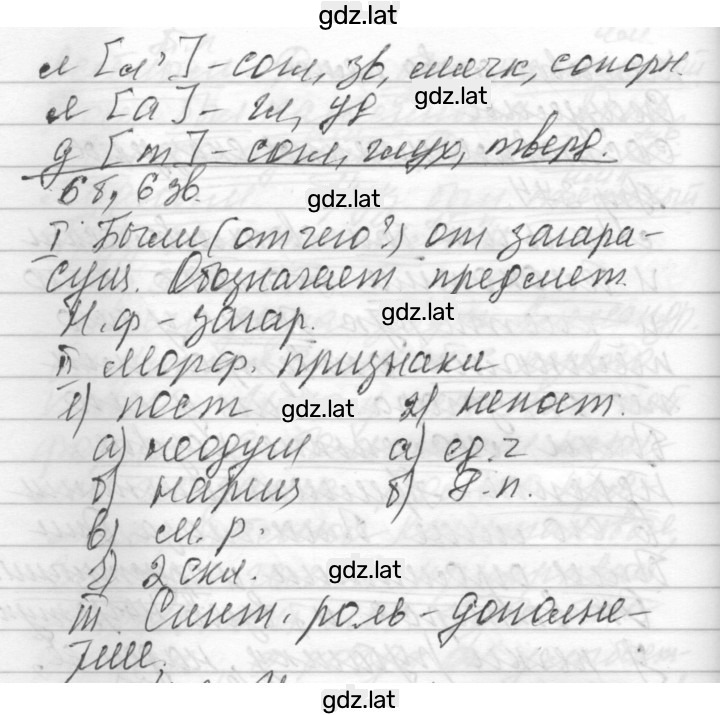 gdz.lat
л [л'] - согл, зв, мягк, сонорн.
я [а] - гл, уд
gdz.lat
д [т] - согл, глух, тверд.
6 б, 6 зв.
gdz.lat
I Были (от чего?) от загара -
сущ. Обозначает предмет.
Н.ф - загар.
gdz.lat
II Морф. признаки
1) пост 2) непост.
gdz.lat
а) неодуш а) ед.ч
б) нариц б) Р.п.
в) м.р.
г) 2 скл.
gdz.lat
III Синт. роль - дополне-
ние.
gdz.lat